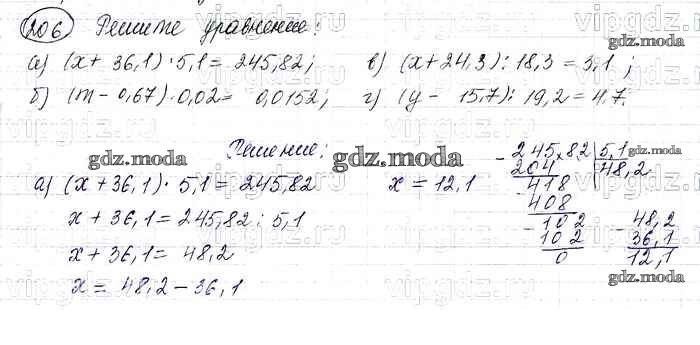 206 Решите уравнение:
а) (x + 36,1) · 5,1 = 245,82; в) (x + 24,3) : 18,3 = 3,1;
б) (m - 0,67) · 0,02 = 0,0152; г) (y - 15,7) : 19,2 = 4,7.
Решение:
а) (x + 36,1) · 5,1 = 245,82
x + 36,1 = 245,82 : 5,1
x + 36,1 = 48,2
x = 48,2 - 36,1
x = 12,1
- 245,82 | 5,1
204 | 48,2
- 418
408
- 102
102
0
- 48,2
36,1
12,1
gdz.moda
gdz.moda
gdz.moda
gdz.moda
gdz.moda
gdz.moda
vipgdz.ru
vipgdz.ru
vipgdz.ru